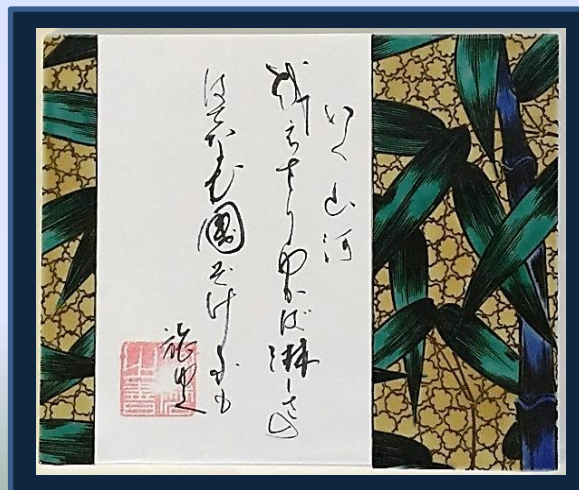 いく山河
越えさりゆかば淋しさの
はてなむ國ぞけふも
旅ゆく